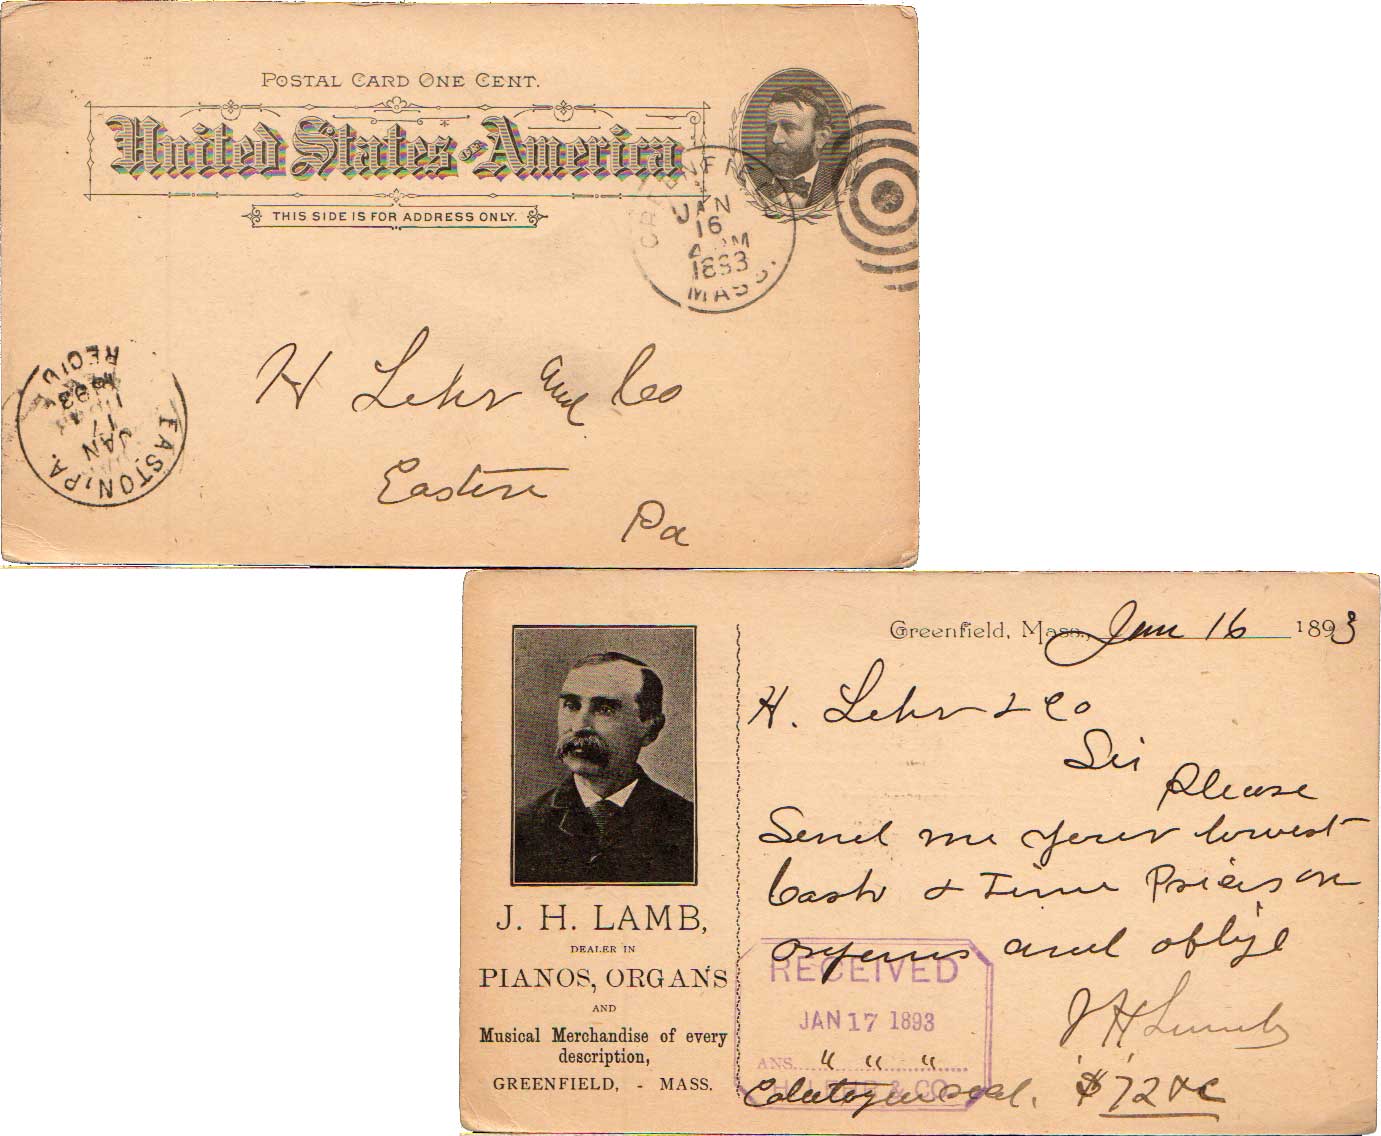 POSTAL CARD ONE CENT.
United States of America
THIS SIDE IS FOR ADDRESS ONLY.
GREENFIELD
JAN
16
4 PM
1893
MASS.
H Lehr and Co
Easton
Pa
EASTON, PA.
JAN
17
1893
REC'D
Greenfield, Mass., Jan 16 1893
H. Lehr & Co
Sir
Please
Send me your lowest
Cash & Time Prices on
organs and oblige
J H Lamb
J. H. LAMB,
DEALER IN
PIANOS, ORGANS
AND
Musical Merchandise of every
description,
GREENFIELD, - MASS.
RECEIVED
JAN 17 1893
ANS. " " "
H. LEHR & CO.
Catalogue
$72